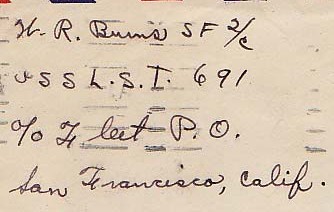 W. R. Burns SF 2/c
USS L.S.T. 691
c/o Fleet P.O.
San Francisco, Calif.